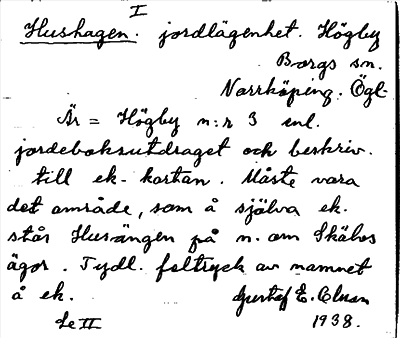 I
Hushagen. jordlägenhet. Högby
Borgs sn.
Norrköping. Ögl.
Är = Högby n:r 3 enl.
jordeboksutdraget och beskriv.
till ek-kartan. Måste vara
det område, som å själva ek.
står Husängen på n. om Skälvs
ägor. Tydl. feltryck av namnet
å ek.
Gustaf E. Olsson
Se II
1938.